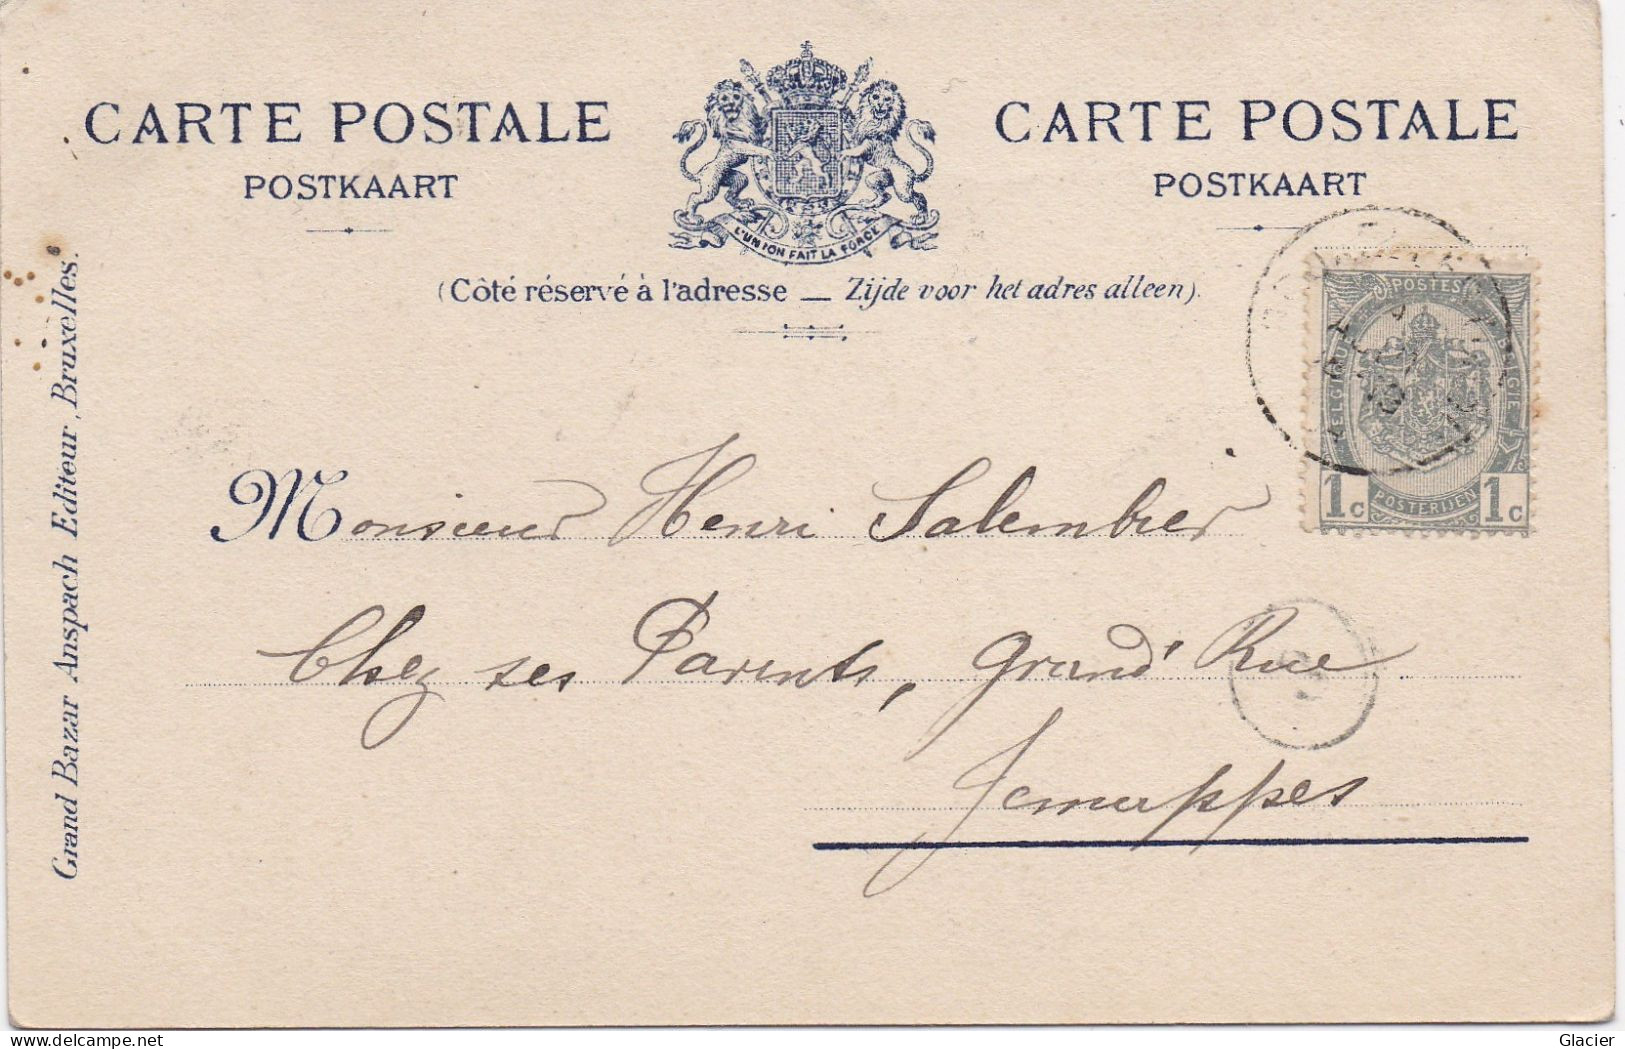 CARTE POSTALE
POSTKAART
L'UNION FAIT LA FORCE
CARTE POSTALE
POSTKAART
(Côté réservé à l'adresse — Zijde voor het adres alleen).
POSTES
BELGIQUE
BELGIE
1c
POSTERIJEN
1c
Monsieur Henri Salembier
Chez ses Parents, Grand' Rue
Jemappes
Grand Bazar Anspach Editeur, Bruxelles.
Glacier